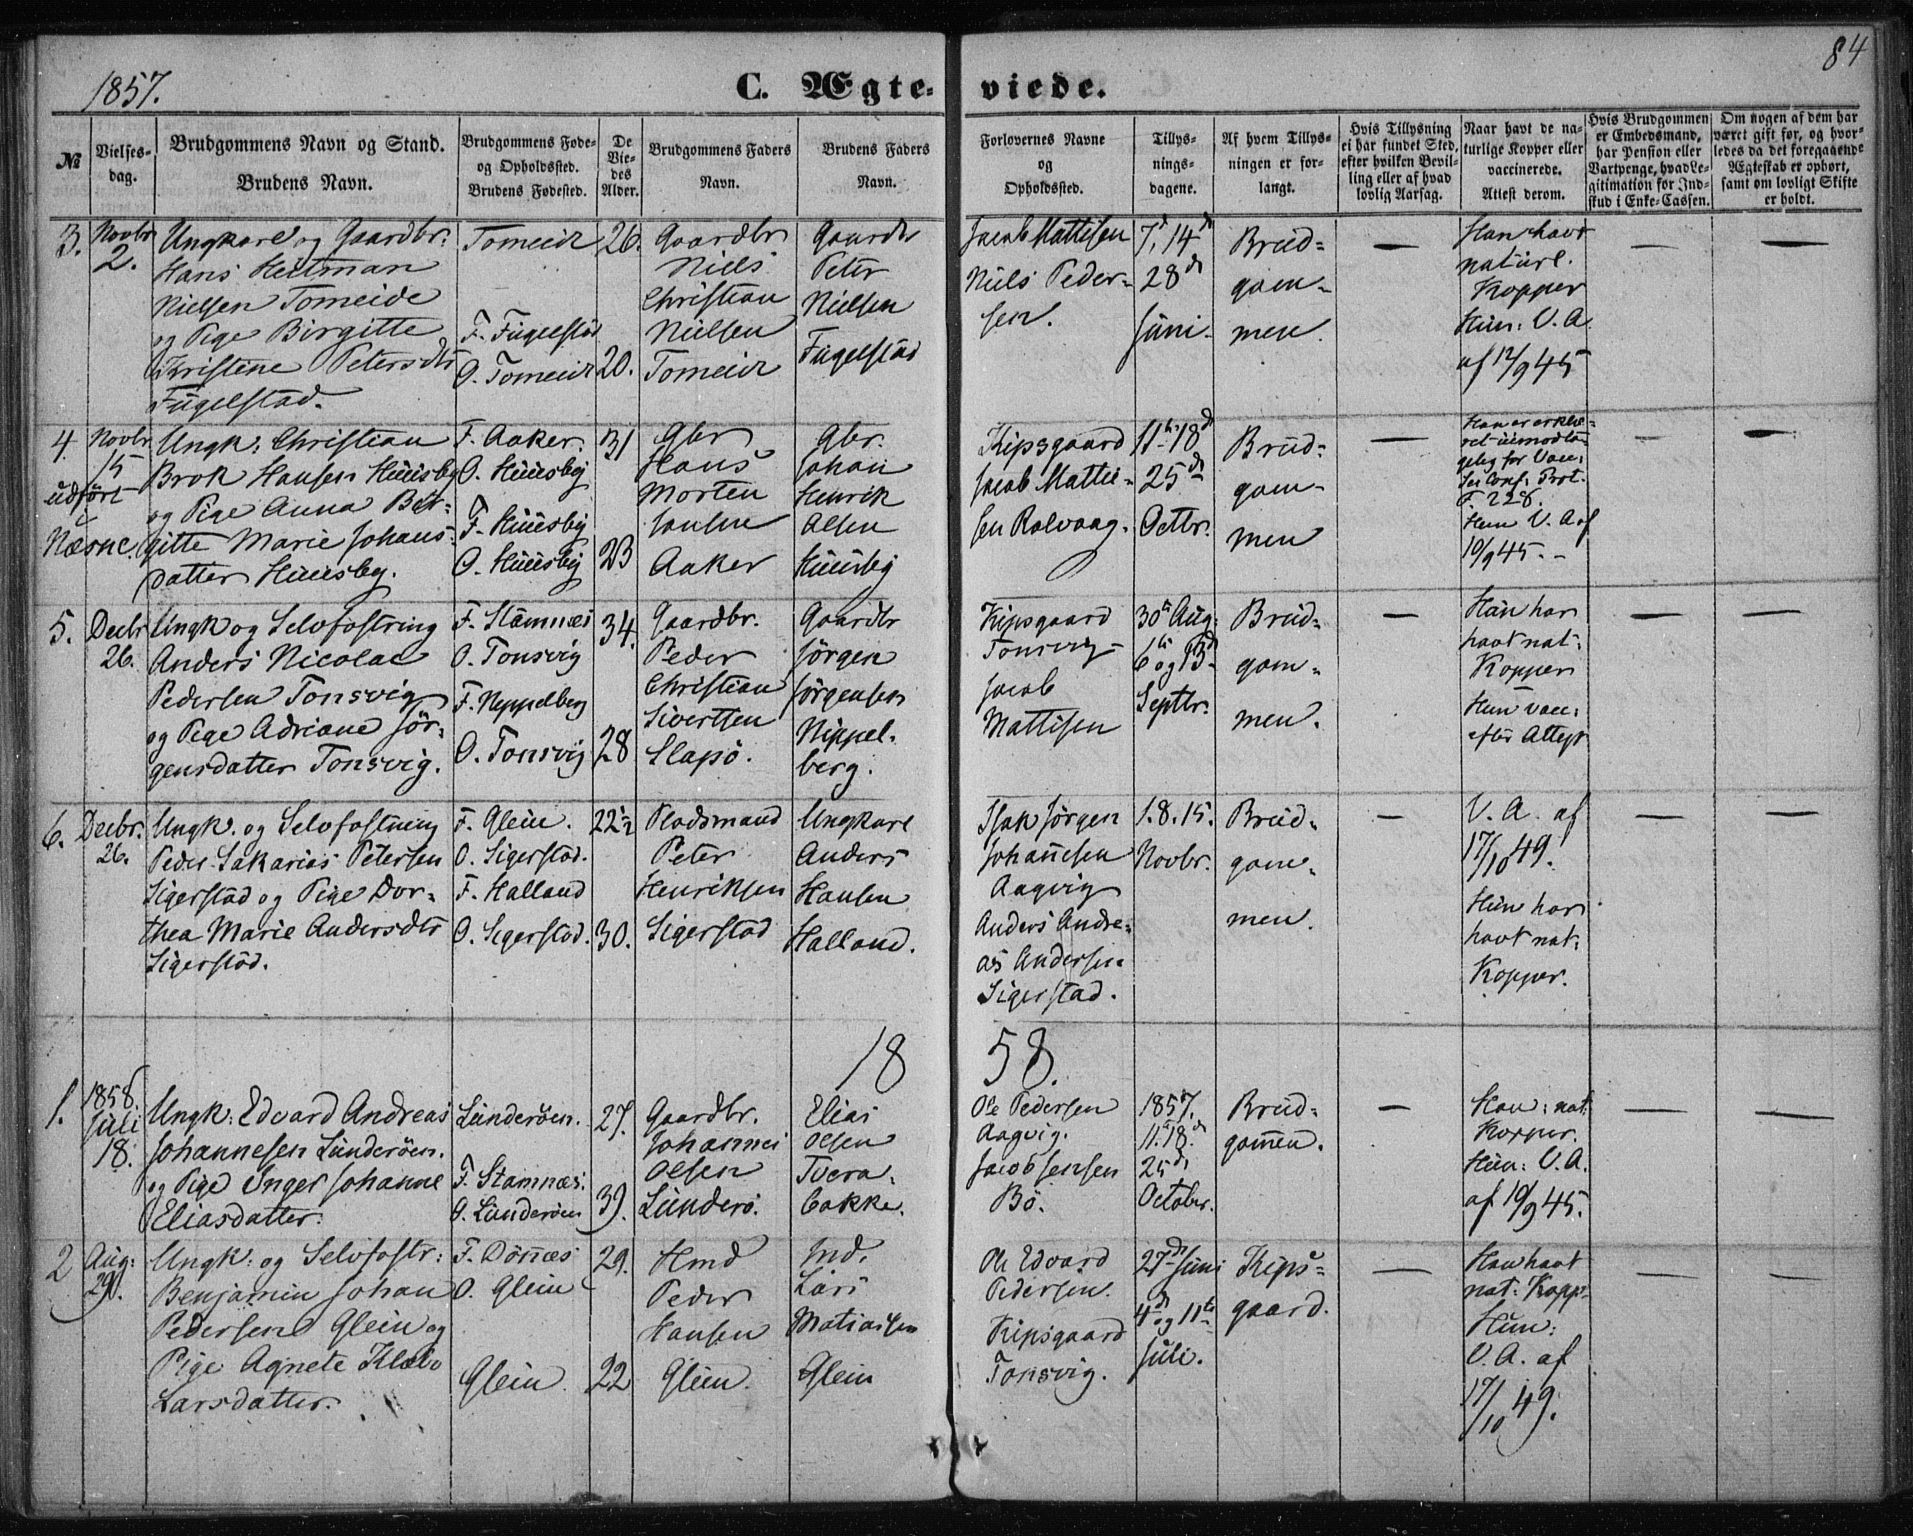 84
1857.
C. Ægteviede.
№
Vielsesdag.
Brudgommens Navn og Stand.
Brudens Navn.
Brudgommens Føde-
og Opholdssted.
Brudens Fødested.
De
Vie-
des
Alder.
Brudgommens Faders
Navn.
Brudens Faders
Navn.
Forlovernes Navne
og
Opholdssted.
Tillys-
nings-
dagene.
Af hvem Tillys-
ningen er for-
langt.
Hvis Tillysning
ei har fundet Sted,
efter hvilken Bevil-
ling eller af hvad
lovlig Aarsag.
Naar havt de na-
turlige Kopper eller
vaccinerede.
Attest derom.
Hvis Brudgommen
er Embedsmand,
har Pension eller
Vartpenge, hvad Le-
gitimation for Ind-
skud i Enke-Cassen.
Om nogen af dem har
været gift før, og hvor-
ledes da det foregaaende
Ægteskab er ophørt,
samt om lovligt Skifte
er holdt.
3.
Novbr
2.
Ungkarl og Gaardbr:
Hans Heitman
Nielsen Tomeide
og Pige Birgitte
Kristine Petersdtr
Fugelstad.
Tomeide
F. Fugelstad
O. Tomeide
26.
20.
Gaardbr
Niels
Christian
Nielsen
Tomeide
Gaardbr
Peter
Nielsen
Fugelstad
Jacob Mattisen
Niels Peder-
sen.
7d, 14d
28d
Juni
Brud-
gom-
men.
—
Han havt
naturl.
Kopper
Hun: V. A
af 12/9 45
—
—
4
Novbr
15
udført
Næsne.
Ungk: Christian
Brok Hansen Huusby
og Pige Anna Bir-
gitte Marie Johans-
datter Huusby.
F. Aaker.
O. Huusby
F. Huusby
O. Huusby
31
23
Gbr
Hans
Morten
Jansen
Aaker
Gbr.
Johan
Henrik
Olsen
Huusby
Kipsgaard
Jacob Matti-
sen Rølvaag.
11te 18d
25d
Octbr.
Brud-
gom-
men
—
Han er erklæ-
ret uimodta-
gelig for Vacc:
See Conf. Prot.
F. 228.
Hun V. A af
10/9 45.
—
—
5.
Decbr
26.
Ungk og Selvfostring
Anders Nicolai
Pedersen Tonsvig
og Pige Adriane Jør-
gensdatter Tonsvig.
F. Stamnæs
O. Tonsvig
F. Neppelberg
O. Tonsvig
34.
28
Gaardbr.
Peder
Christian
Sivertsen
Slapø.
Gaardbr
Jørgen
Jørgensen
Nippel-
berg.
Kipsgaard
Tonsvig
Jacob
Mattisen
30te Aug:
6te og 13d
Septbr.
Brud-
gom-
men.
—
Han har
havt nat:
Kopper
Hun vacc:
efter Attest
—
—
6.
Decbr.
26.
Ungk. og Selvfostning
Peder Sakarias Petersen
Sigerstad og Pige Dor-
thea Marie Andersdtr
Sigerstad.
F. Glein.
O. Sigerstad.
F. Halland
O. Sigerstad.
22½
30.
Pladsmand
Peter
Henriksen
Sigerstad
Ungkarl
Anders
Hansen
Halland.
Isak Jørgen
Johannesen
Aagvig
Anders Andre-
as Andersen
Sigerstad.
1. 8. 15.
Novbr.
Brud-
gom-
men.
—
V. A. af
17/10 49.
Hun har
havt nat:
Kopper.
—
—
1858.
1.
1858
Juli
18.
Ungk: Edvard Andreas
Johannesen Lunderøen.
og Pige Inger Johanne
Eliasdatter.
Lunderøen.
F. Stamnæs.
O. Lunderøen
27.
39.
Gaardbr.
Johannes
Olsen
Lunderø.
Elias
Olsen
Tvera-
bakke.
Ole Pedersen
Aagvig.
Jacob Jensen
Bø.
1857.
11te 18d
25d
October.
Brud-
gommen.
—
Han: nat:
Kopper.
Hun: V. A.
af 10/9 45.
—
—
2
Aug:
29.
Ungk: og Selvfostr:
Benjamin Johan
Pedersen Glein og
Pige Agnete Klæbo
Larsdatter.
F. Dønnæs
O. Glein
Glein.
29.
22
Hmd
Peder
Hansen
Glein.
Ind.
Lars
Matiassen
Glein
Ole Edvard
Pedersen.
Kipsgaard
Tonsvig.
27d Juni
4d og 11te
Juli.
Kips-
gaard.
—
Han havt
nat: Kopp-
Hun:
V. A. af
17/10 49.
—
—